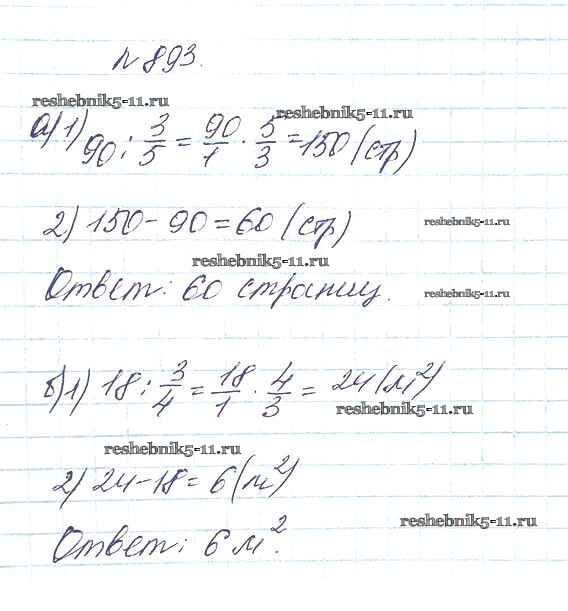 №893.
reshebnik5-11.ru
reshebnik5-11.ru
а) 1) 90 : 3/5 = 90/1 · 5/3 = 150 (стр)
2) 150 - 90 = 60 (стр)
reshebnik5-11.ru
reshebnik5-11.ru
Ответ: 60 страниц.
reshebnik5-11.ru
б) 1) 18 : 3/4 = 18/1 · 4/3 = 24 (м²)
reshebnik5-11.ru
reshebnik5-11.ru
2) 24 - 18 = 6 (м²)
reshebnik5-11.ru
Ответ: 6 м².